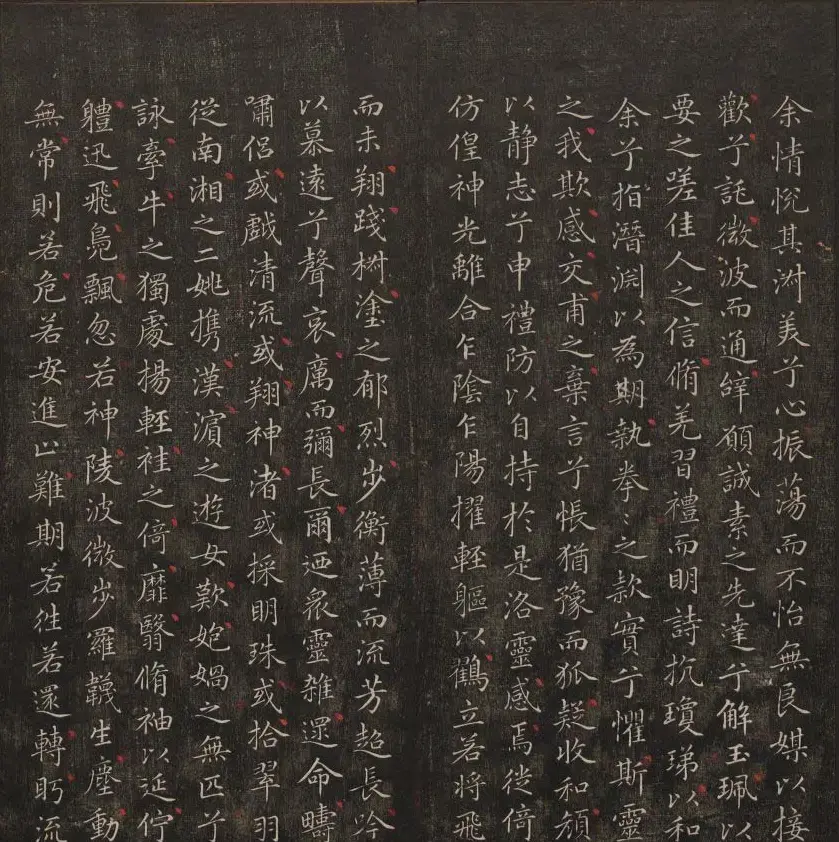 余情悅其淑美兮心振蕩而不怡無良媒以接
歡兮託微波而通辭願誠素之先達兮解玉珮以
要之嗟佳人之信脩羌習禮而明詩抗瓊珶以和
余兮指潛淵以為期執拳〻之款實兮懼斯靈
之我欺感交甫之棄言兮悵猶豫而狐疑收和顏
以静志兮申禮防以自持於是洛靈感焉徙倚
仿偟神光離合乍陰乍陽擢輕軀以鶴立若將飛
而未翔踐椒塗之郁烈步衡薄而流芳超長吟
以慕遠兮聲哀厲而彌長爾迺衆靈雜遝命疇
嘯侣或戲清流或翔神渚或採明珠或拾翠羽
從南湘之二姚携漢濱之遊女歎匏媧之無匹兮
詠牽牛之獨處揚輕袿之倚靡翳脩袖以延佇
軆迅飛鳧飄忽若神陵波微步羅韈生塵動
無常則若危若安進止難期若往若還轉眄流